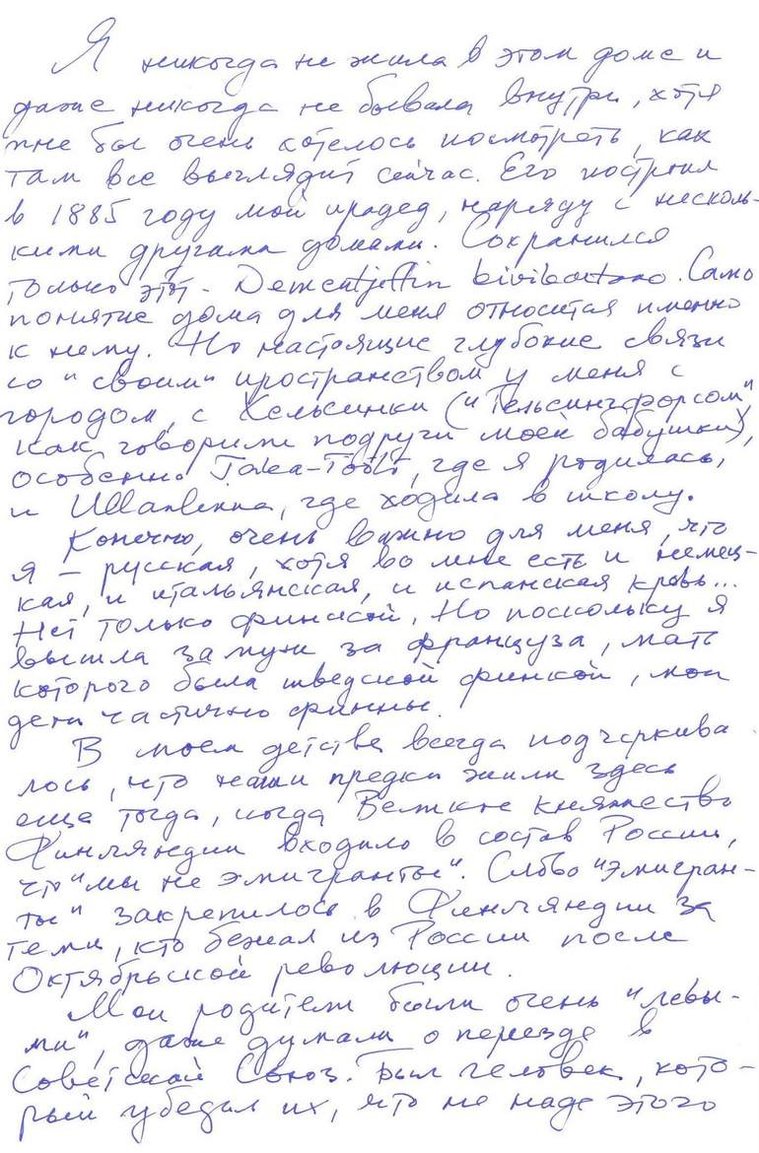 Я никогда не жила в этом доме и
даже никогда не бывала внутри, хотя
мне бы очень хотелось посмотреть, как
там все выглядит сейчас. Его построил
в 1885 году мой прадед, наряду с несколь-
кими другими домами. Сохранился
только этот - Dementjeffin kivikartano. Само
понятие дома для меня относится именно
к нему. Но настоящие глубокие связи
со "своим" пространством у меня с
городом, с Хельсинки ("Гельсингфорсом",
как говорили подруги моей бабушки),
особенно Taka-Töölö, где я родилась,
и Ullanlinna, где ходила в школу.
Конечно, очень важно для меня, что
я - русская, хотя во мне есть и немец-
кая, и итальянская, и испанская кровь...
Нет только финской. Но поскольку я
вышла замуж за француза, мать
которого была шведской финкой, мои
дети частично финны.
В моем детстве всегда подчеркива
лось, что наши предки жили здесь
еще тогда, когда Великое княжество
Финляндии входило в состав России,
что "мы не эмигранты". Слово "эмигран-
ты" закрепилось в Финляндии за
теми, кто бежал из России после
Октябрьской революции.
Мои родители были очень "левы-
ми", даже думали о переезде в
Советский Союз. Был человек, кото-
рый убедил их, что не надо этого